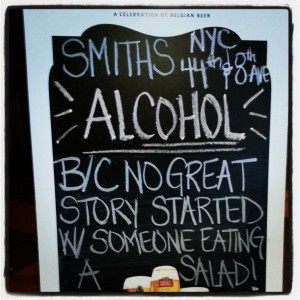 A CELEBRATION OF BELGIAN BEER
SMITHS NYC
44th & 8th AVE
ALCOHOL
B/C NO GREAT
STORY STARTED
W/ SOMEONE EATING
A SALAD!